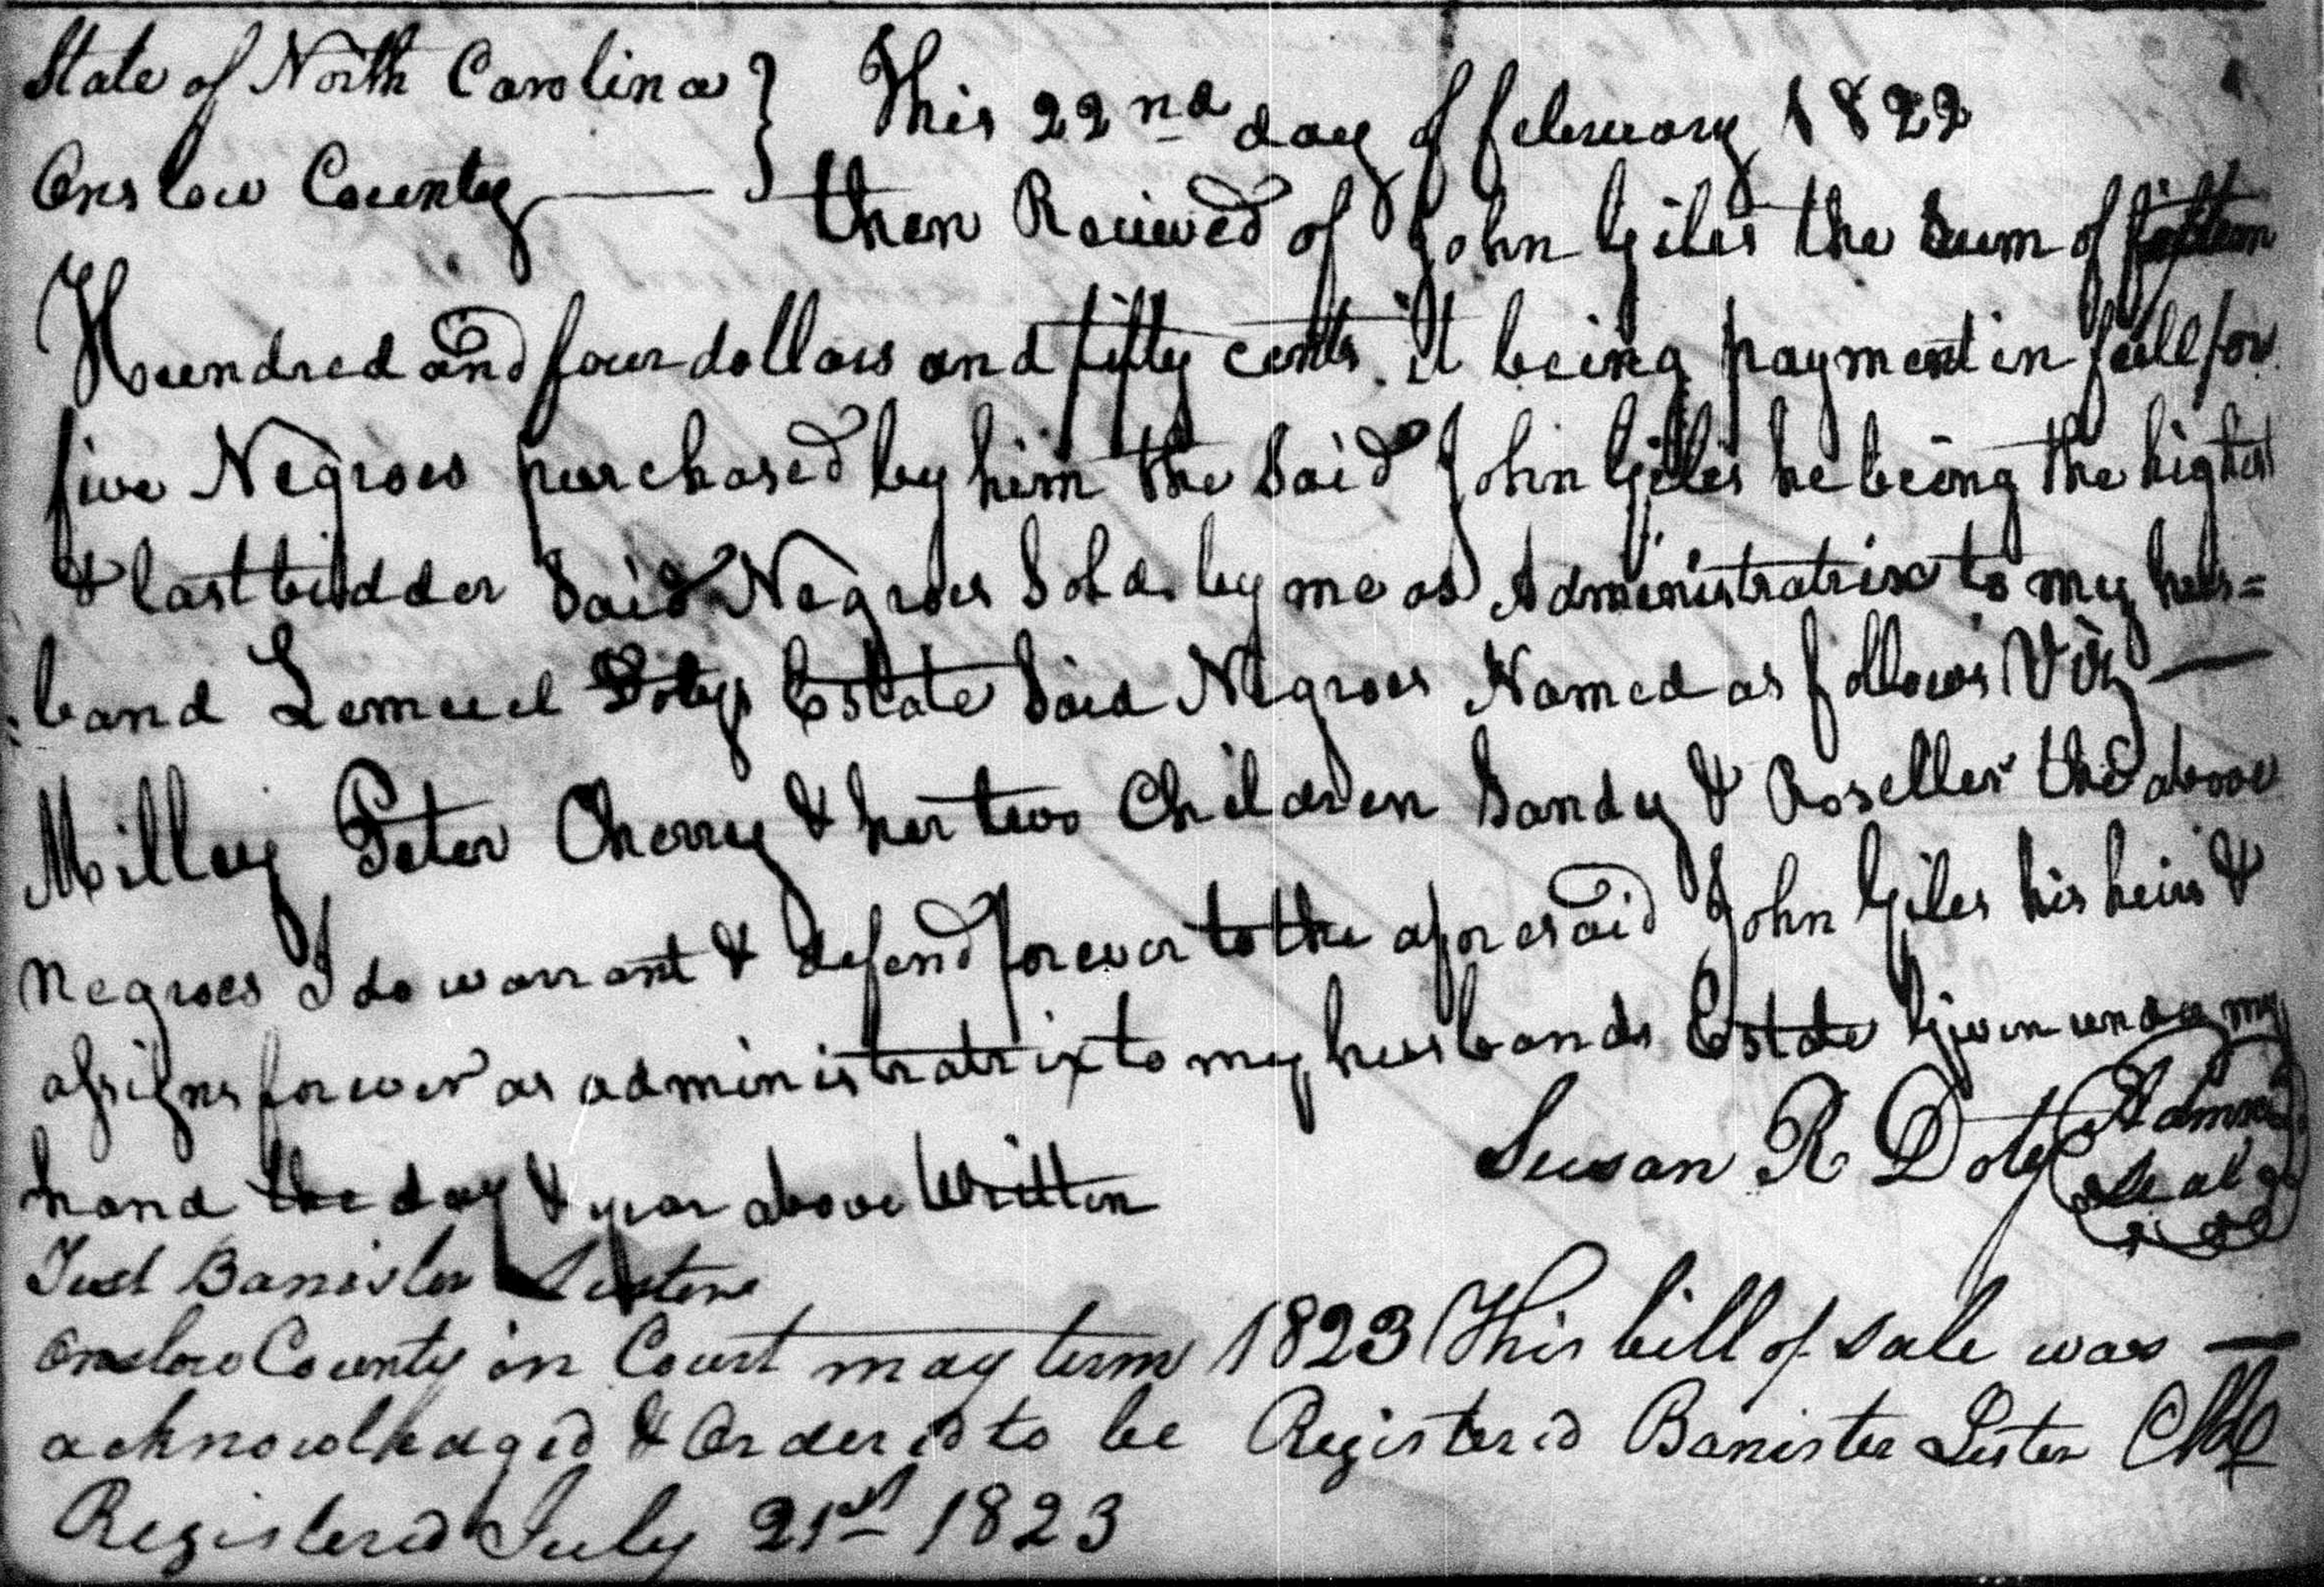 State of North Carolina } This 22nd day of february 1822
Onslow County — } then Recieved of John Giles the Sum of fifteen
Hundred and four dollars and fifty cents it being payment in full for
five Negroes purchased by him the Said John Giles he being the highest
& last bidder Said Negroes Sold by me as Administratrix to my hus=
band Lemuel Dotys Estate Said Negroes Named as follows Viz —
Milley Peter Cherry & her two Children Sandy & Roseller the above
Negroes I do warrant & defend forever to the aforesaid John Giles his heirs &
assigns forever as administratrix to my husbands Estate Given under my
hand the day & year above Written
Susan R Doty Admx
Seal
Test Banister Lester
Onslow County in Court may term 1823 This bill of sale was —
acknowlhadged & Ordered to be Registered Banister Lester Clk
Registered July 21st 1823